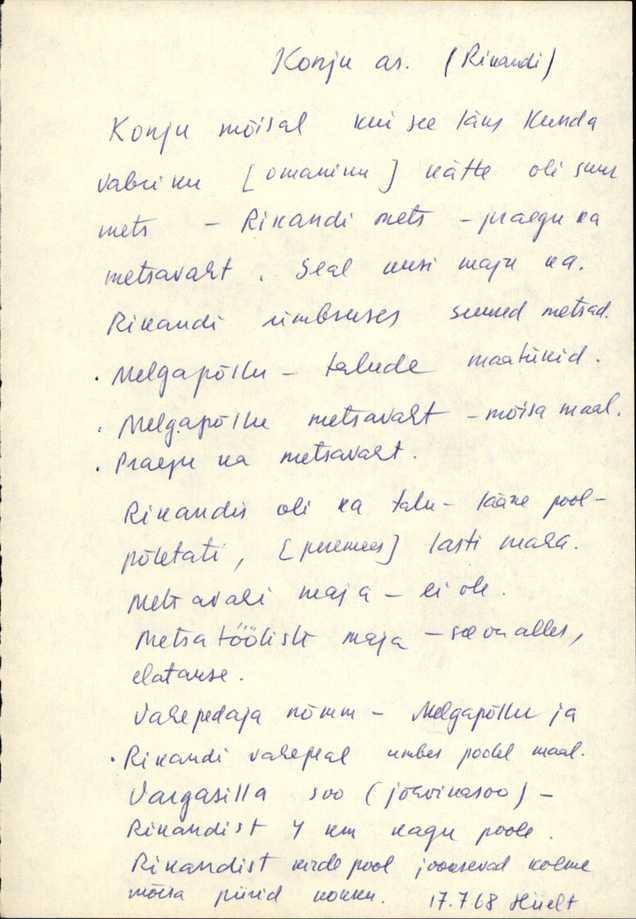 Konju as. (Rikandi)
Konju mõisal kui see läks Kunda
vabriku [omaniku] kätte oli suur
mets – Rikandi mets – praegu ka
metsavaht. Seal uusi maju ka.
Rikandi ümbruses suured metsad.
. Melgapõllu – talude maatükid.
. Melgapõllu metsavaht – mõisa maal.
. Praegu ka metsavaht.
Rikandis oli ka talu – lääne pool –
põletati, [peremees] lasti maha.
Metsavahi maja – ei ole.
Metsatööliste maja – see on alles,
elatakse.
Vahepedaja nõmm – Melgapõllu ja
. Rikandi vahepeal umbes poolel maal.
Vargasilla soo (jõhvikasoo) –
Rikandist 4 km kagu poole.
Rikandist kirde pool jooksevad kolme
mõisa piirid kokku. 17.7.68